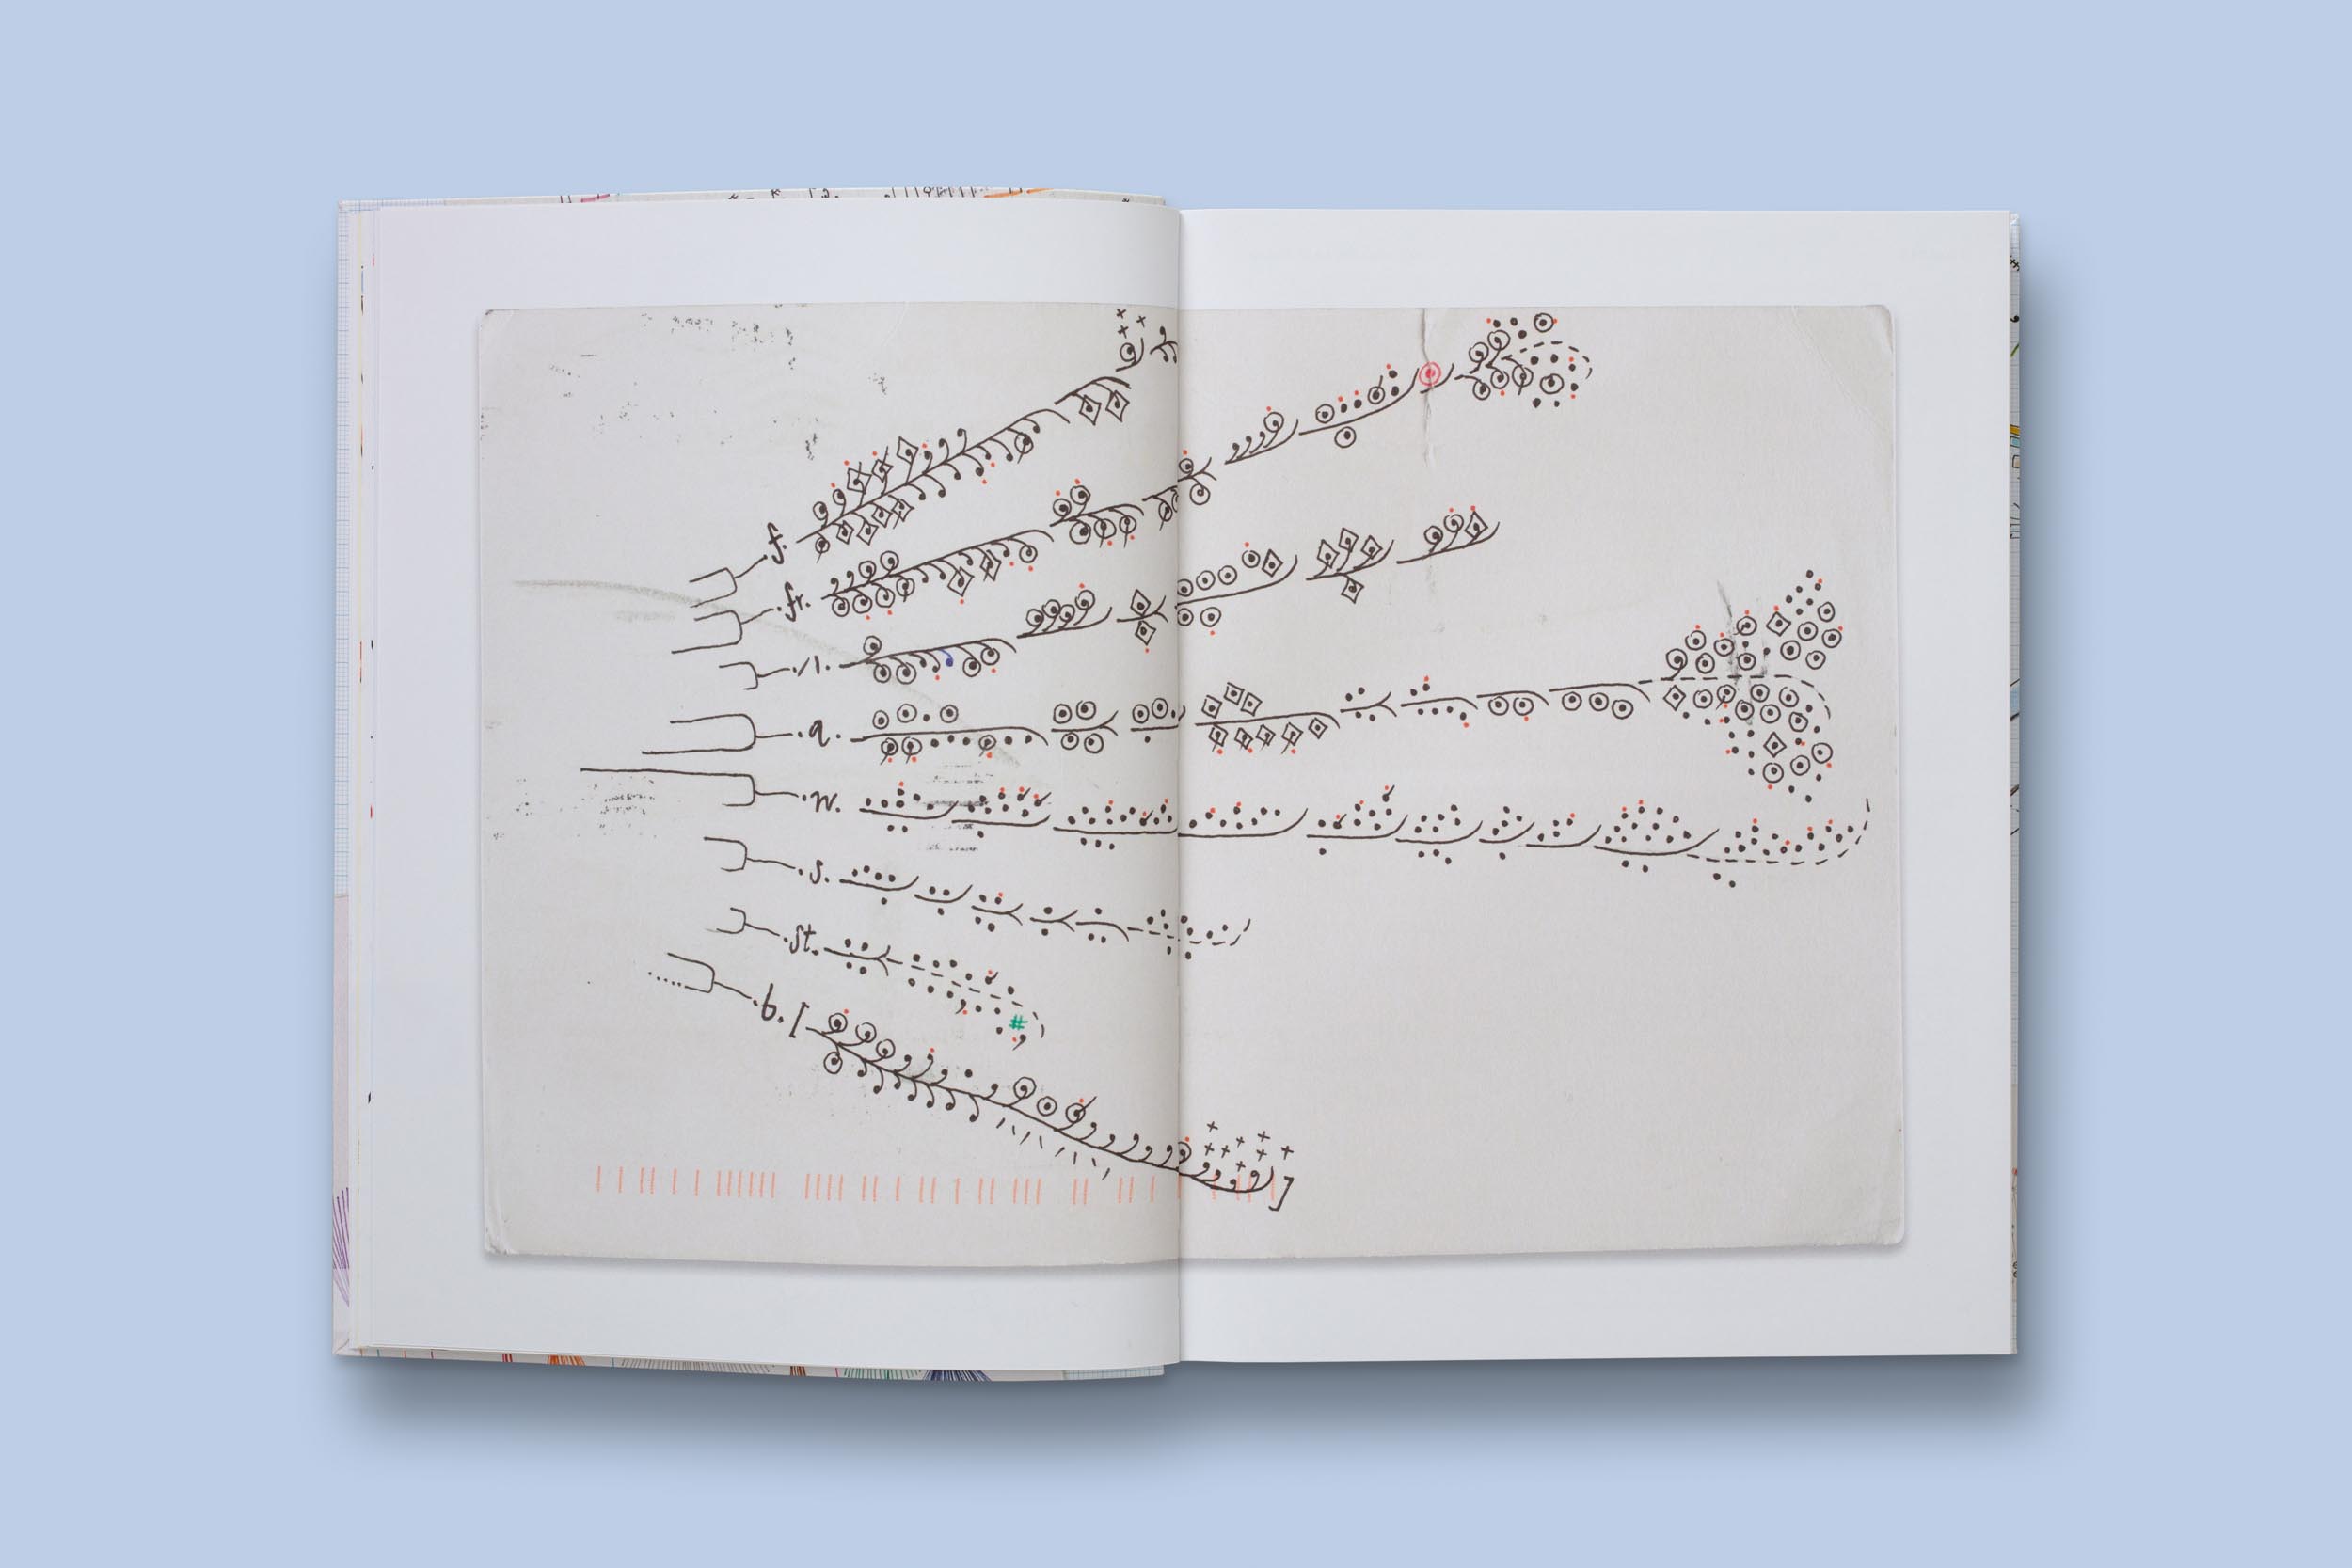 .f.
.fr.
.a.
.w.
.s.
.st.
.b. [ ]